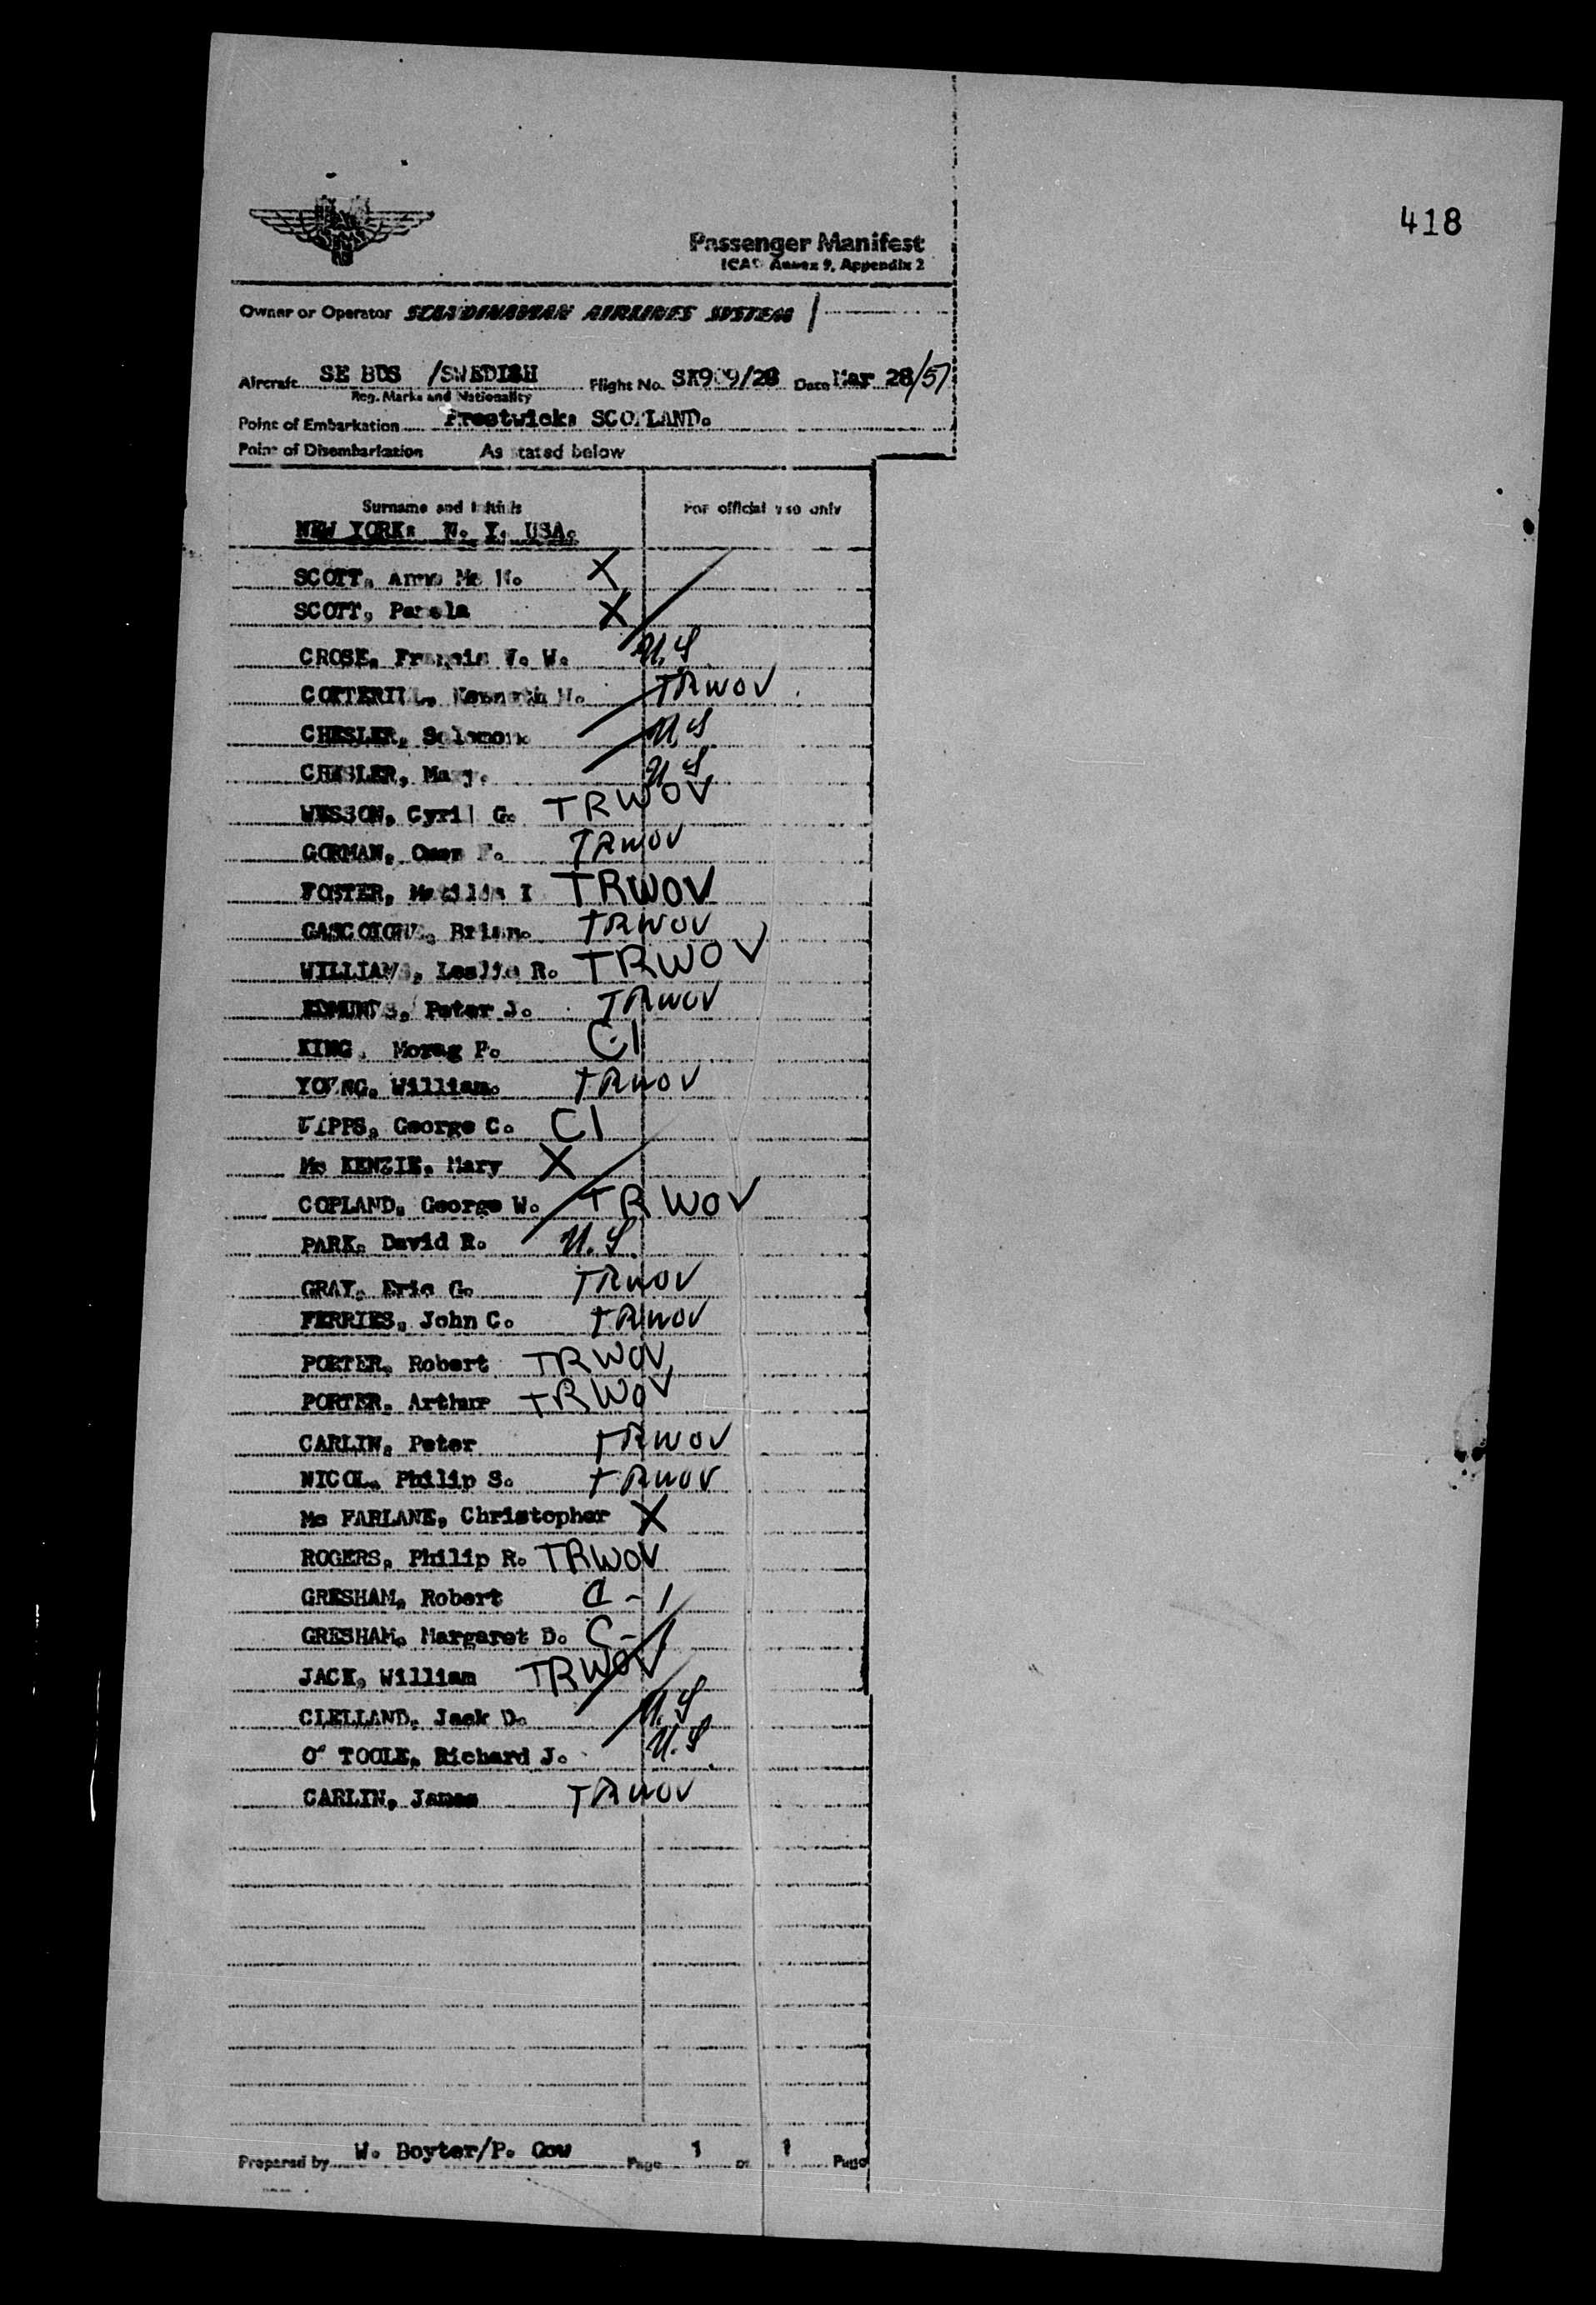 418
Passenger Manifest
ICAO Annex 9, Appendix 2
Owner or Operator SCANDINAVIAN AIRLINES SYSTEM
Aircraft SE BDS /SWEDISH Flight No. SK909/28 Date Mar 28/57
Reg. Marks and Nationality
Point of Embarkation Prestwick: SCOTLAND.
Point of Disembarkation As stated below
Surname and Initials For official use only
NEW YORK: N. Y. USA.
SCOTT, Anne Mc N. X
SCOTT, Pamela X
CROSE, Francis V. W. U.S
COTTERILL, Kenneth H. TRWOV
CHESLER, Solomon U.S
CHESLER, Mary. U.S
WESSON, Cyril G. TRWOV
GORMAN, Omer F. TRWOV
FOSTER, Matilda I TRWOV
GASCOIGNE, Brian. TRWOV
WILLIAMS, Leslie R. TRWOV
EDMUNDS, Peter J. TRWOV
KING, Morag P. C1
YOUNG, William. TRWOV
George C. C1
Mc KENZIE, Mary X
COPLAND, George W. TRWOV
PARK, David R. U.S.
GRAY, Eric G. TRWOV
FERRIES, John C. TRWOV
PORTER, Robert TRWOV
PORTER, Arthur TRWOV
CARLIN, Peter TRWOV
NICOL, Philip S. TRWOV
Mc FARLANE, Christopher X
ROGERS, Philip R. TRWOV
GRESHAM, Robert C-1
GRESHAM, Margaret D. C-1
JACK, William TRWOV
CLELLAND, Jack D. U.S
O' TOOLE, Richard J. U.S.
CARLIN, James TRWOV
Prepared by W. Boyter/P. Gow Page 1 of 1 Page